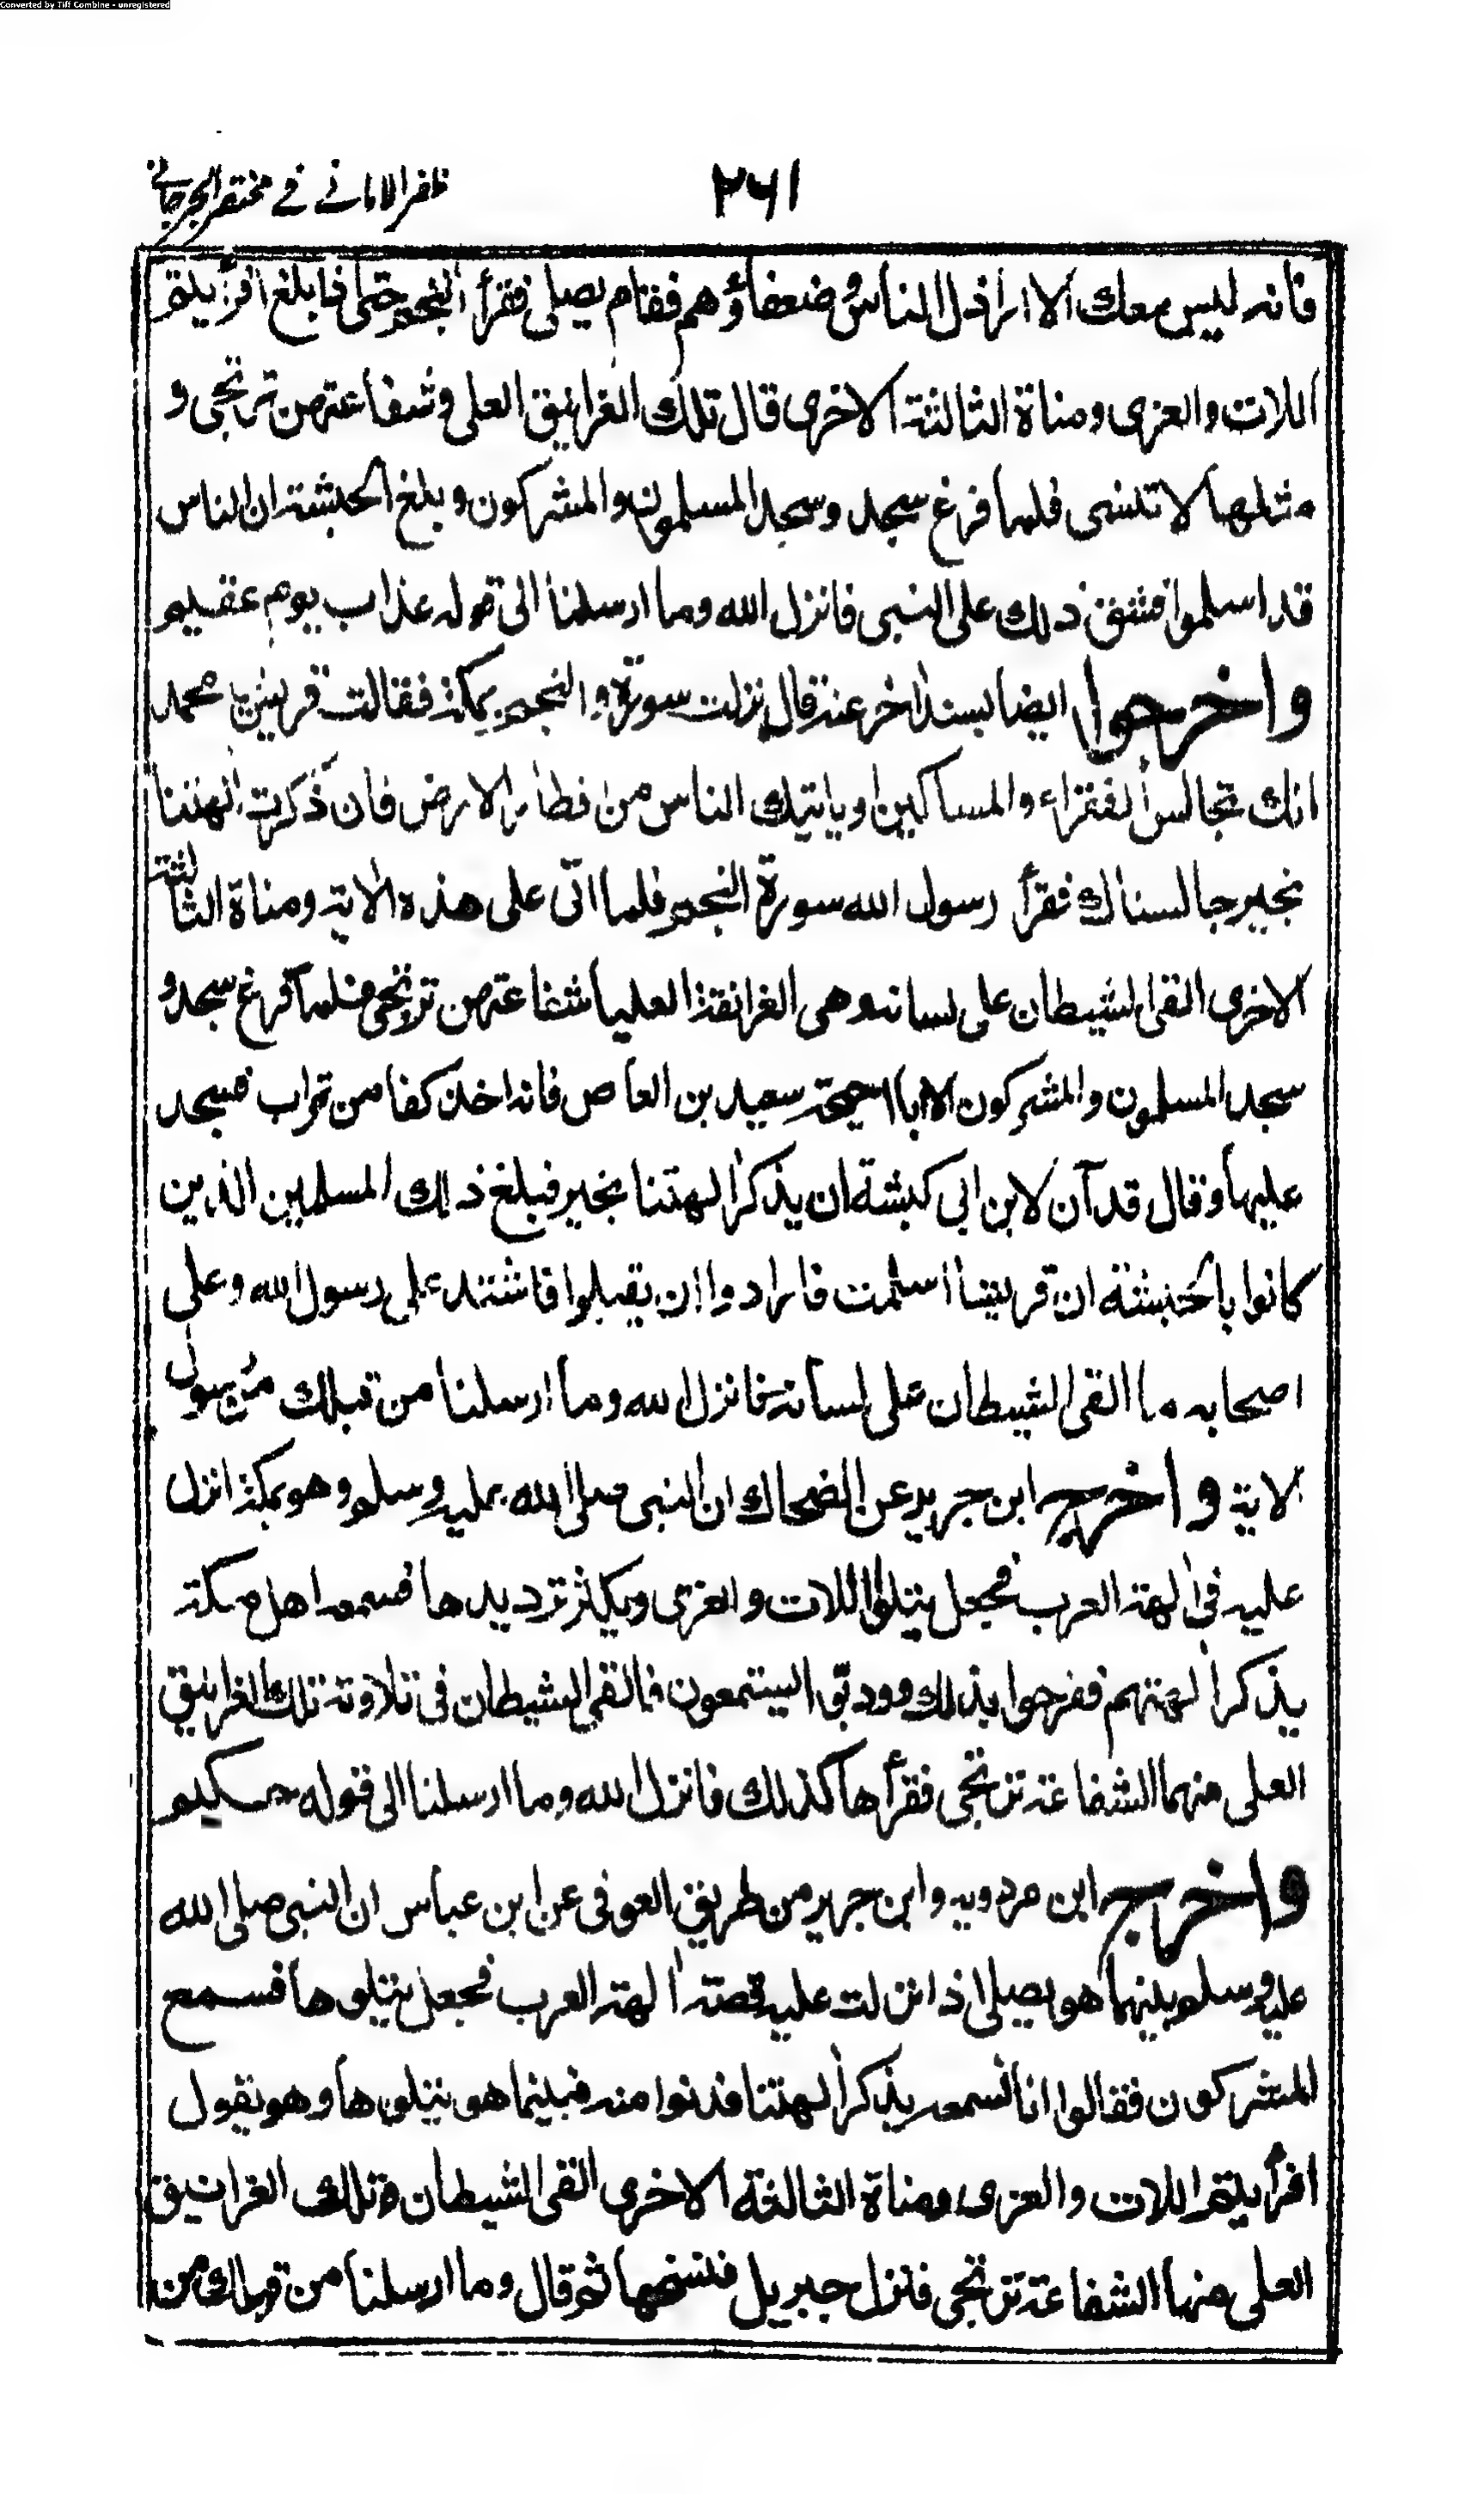 Converted by Tiff Combine - unregistered
٢٦١
ظفر الامانی فی مختصر الجرجانی
فانه ليس معك الا اراذل الناس وضعفاؤهم فقام يصلی فقرأ النجم حتی فا بلغ افرأيتم
اللات والعزی ومناة الثالثة الاخری قال تلك الغرانيق العلی وشفاعتهن ترتجی و
مثلها لا تنسی فلما فرغ سجد وسجد المسلمون والمشركون وبلغ الحبشة ان الناس
قد اسلموا فشق ذلك علی النبی فانزل الله وما ارسلنا الی قوله عذاب يوم عقيم
واخرجوا ايضا بسند اخر عنه قال نزلت سورة والنجم بمكة فقالت قريش يا محمد
انك تجالس الفقراء والمساكين وياتيك الناس من اقطار الارض فان ذكرت الهتنا
بخير جالسناك فقرأ رسول الله سورة النجم فلما اتی علی هذه الاية ومناة الثالثة
الاخری القی الشيطان علی لسانه وهی الغرانقة العليا شفاعتهن ترتجی فلما فرغ سجد و
سجد المسلمون والمشركون الا ابا احيحة سعيد بن العاص فانه اخذ كفا من تراب فسجد
عليها وقال قد آن لابن ابی كبشة ان يذكر الهتنا بخير فبلغ ذلك المسلمين الذين
كانوا بالحبشة ان قريشا اسلمت فارادوا ان يقبلوا فاشتد علی رسول الله وعلی
اصحابه ما القی الشيطان علی لسانه فانزل الله وما ارسلنا من قبلك من رسول
الاية واخرج ابن جرير عن الضحاك ان النبی صلی الله عليه وسلم وهو بمكة انزل
عليه فی الهة العرب فجعل يتلو اللات والعزی ويكثر ترديدها فسمعه اهل مكة
يذكر الهتهم ففرحوا بذلك ودنوا يستمعون فالقی الشيطان فی تلاوته تلك الغرانيق
العلی منها الشفاعة ترتجی فقرأها كذلك فانزل الله وما ارسلنا الی قوله حكيم
واخرج ابن مردويه وابن جرير من طريق العوفی عن ابن عباس ان النبی صلی الله
عليه وسلم بينما هو يصلی اذ انزلت عليه قصة الهة العرب فجعل يتلوها فسمع
المشركون فقالوا انا نسمعه يذكر الهتنا فدنوا منه فبينما هو يتلوها وهو يقول
افرأيتم اللات والعزی ومناة الثالثة الاخری القی الشيطان تلك الغرانيق
العلی منها الشفاعة ترتجی فنزل جبريل فنسخها ثم قال وما ارسلنا من قبلك من